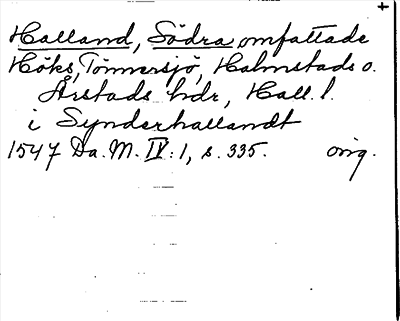 Halland, Södra omfattade
Höks, Tönnersjö, Halmstads o.
Årstads hdr, Hall. l.
i Synderhallandt
1547 Da. M. IV: 1, s. 335. orig.